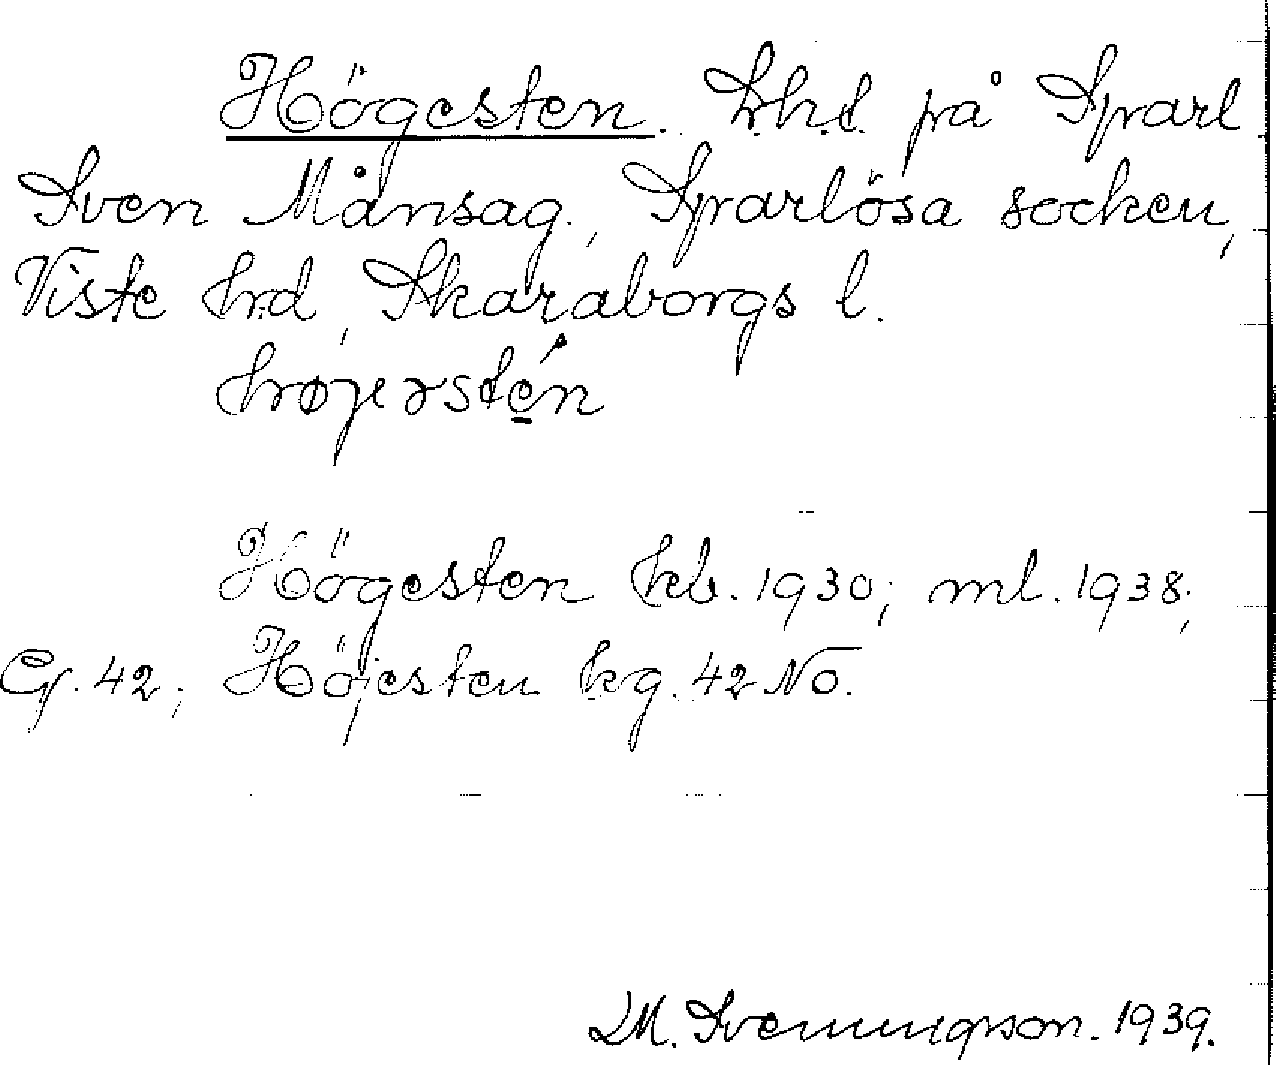 Högesten. Lht. på Sparl.
Sven Månsag., Sparlösa socken,
Viste hrd, Skaraborgs l.
højerstén
Högesten kb. 1930; ml. 1938;
Cg. 42; Höjesten kg. 42 NO.
M. Svenungsson. 1939.